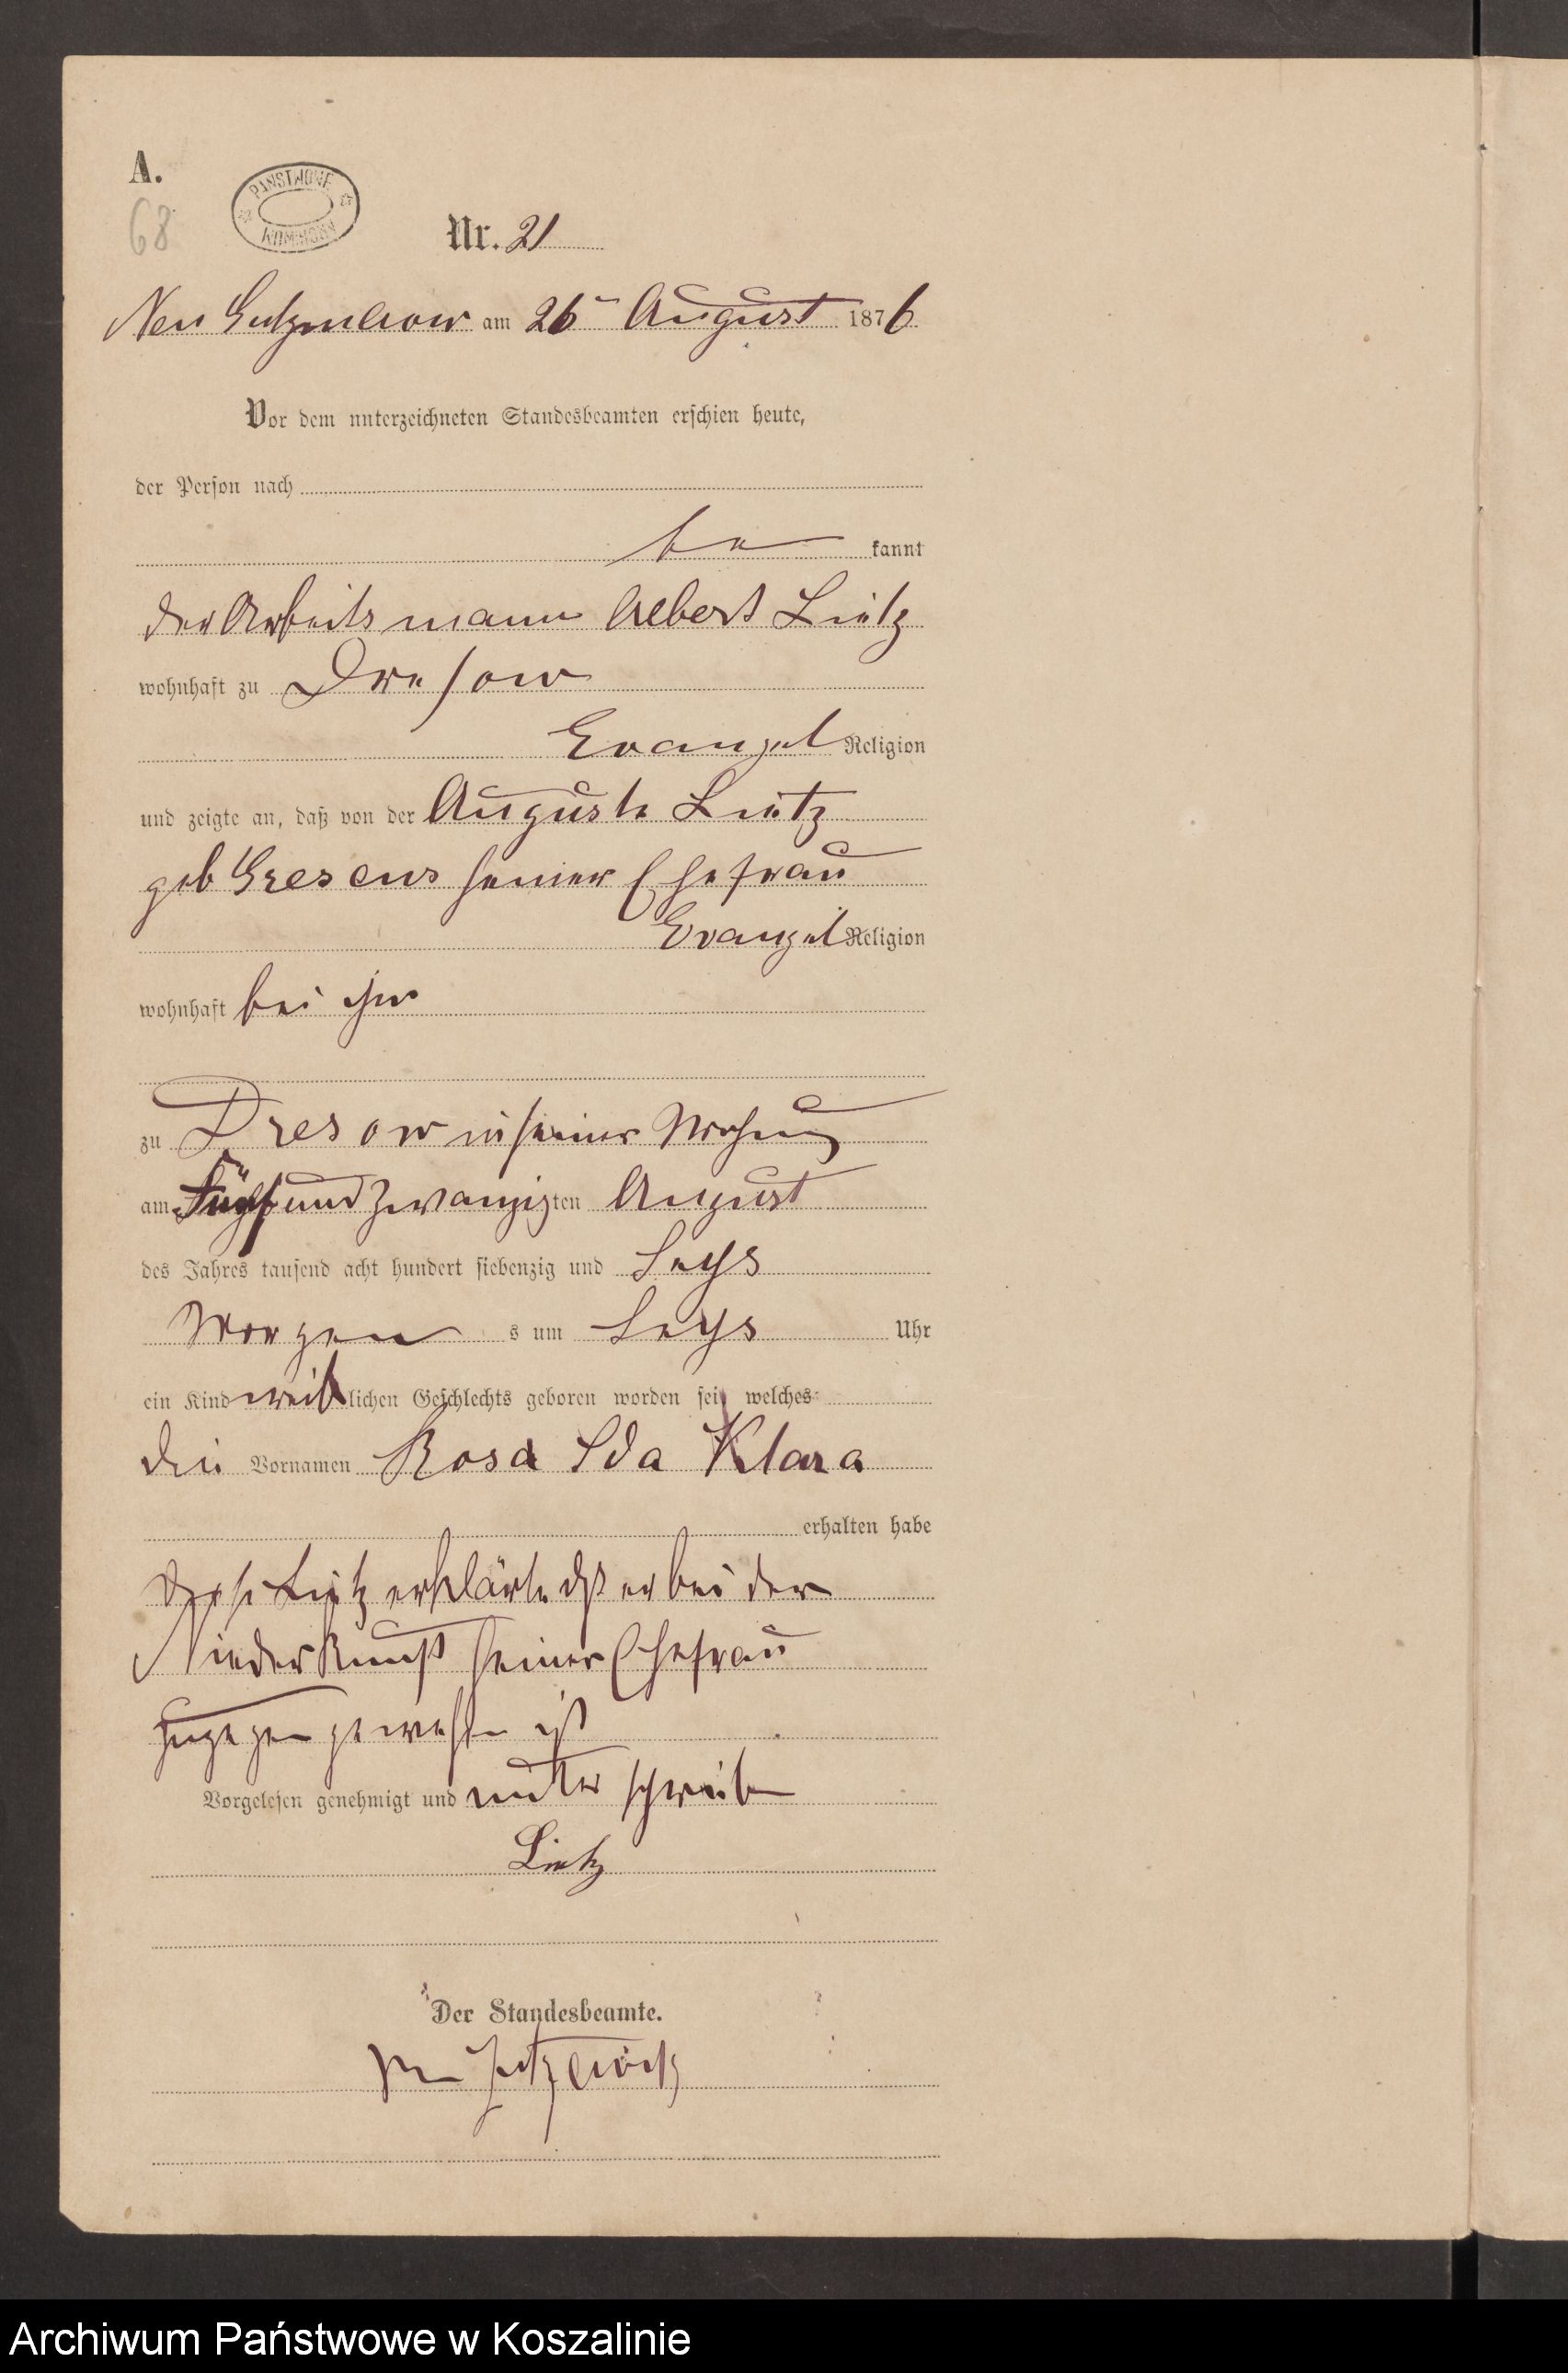 A.
68
PAŃSTWOWE
ARCHIWUM
Nr. 21
Neu Gutzmerow am 26 August 1876
Vor dem unterzeichneten Standesbeamten erschien heute,
der Person nach
be kannt
der Arbeitsmann Albert Lietz
wohnhaft zu Dresow
Evangel Religion
und zeigte an, daß von der Auguste Lietz
geb Gresens seiner Ehefrau
Evangel Religion
wohnhaft bei ihm
zu Dresow in seiner Wohnung
am Fünfundzwanzigten August
des Jahres tausend acht hundert siebenzig und Sechs
Morgen s um Sechs Uhr
ein Kind weiblichen Geschlechts geboren worden sei, welches
die Vornamen Rosa Ida Klara
erhalten habe
Lietz erklärte daß er bei der
Niederkunft seiner Ehefrau
zugegen gewesen ist
Vorgelesen genehmigt und unterschrieben
Lietz
Der Standesbeamte.
Archiwum Państwowe w Koszalinie